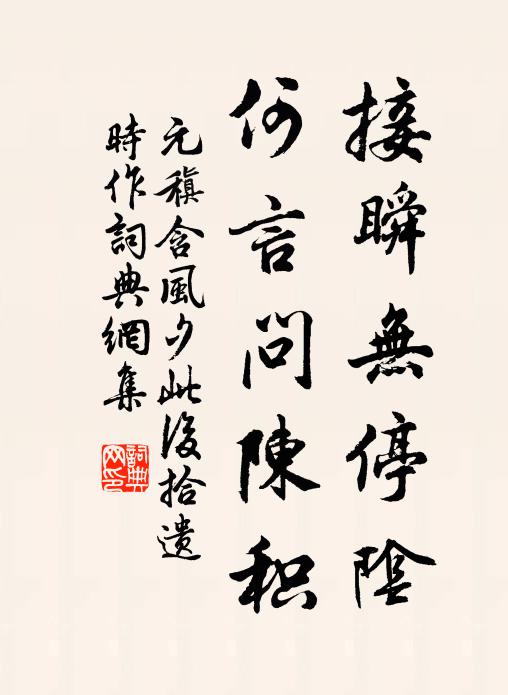 接瞬無停陰
何言問陳积
元稹含風夕此後拾遺
時作詞典網集
詞典网印